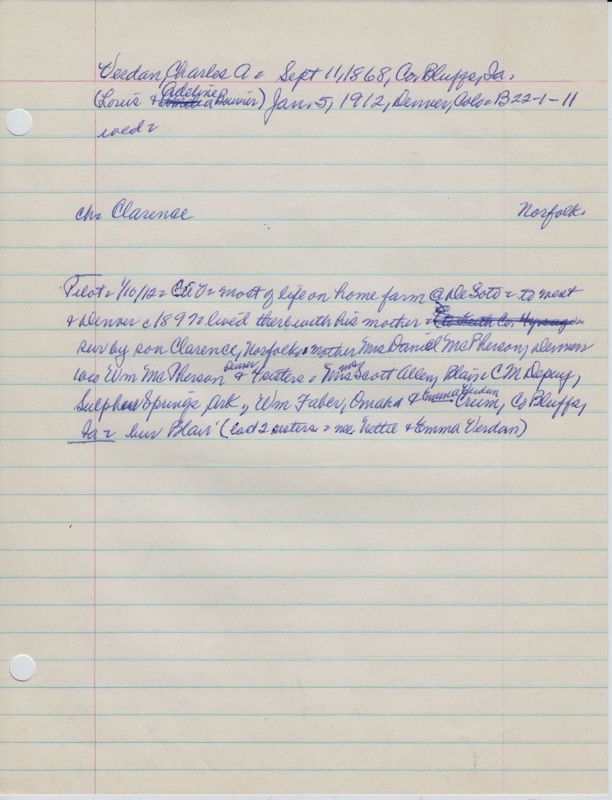 Verdan, Charles A = Sept 11, 1868, Co, Bluffs, Ia.
(Louis & Adeline Bouvier) Jan. 5, 1912, Denver, Colo = B22-1-11
wed =
ch = Clarence Norfolk.
Pilot = 1/10/12 = most of life on home farm @ De Soto = to west
& Denver c 1897 = lived there with his mother =
sur by son Clarence, Norfolk = mother Mrs Daniel McPherson, Denver
bro Wm McPherson Denver & 4 sisters = Mrs Scott Allen, Blair = C M Depuy,
Sulpher Springs, Ark., Wm Faber, Omaha & Emma Verdan Crum, Co Bluffs,
Ia = bur Blair (last 2 sisters = nee Nettie & Emma Verdan)